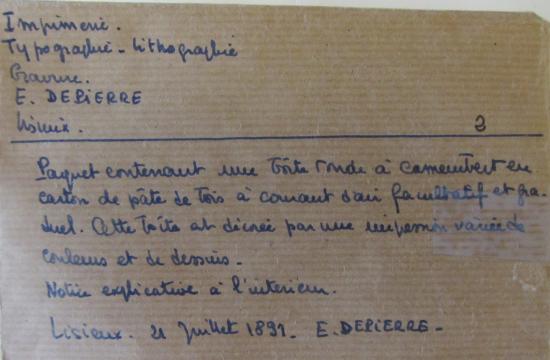 Imprimerie.
Typographie - Lithographie
Gravure.
E. DEPIERRE
Lisieux.
2
Paquet contenant une boîte ronde à camembert en
carton de pâte de bois à courant d'air facultatif et gra-
duel. Cette boîte est décorée par une impression variée de
couleurs et de dessins.
Notice explicative à l'intérieur.
Lisieux. 21 Juillet 1891. E. DEPIERRE -